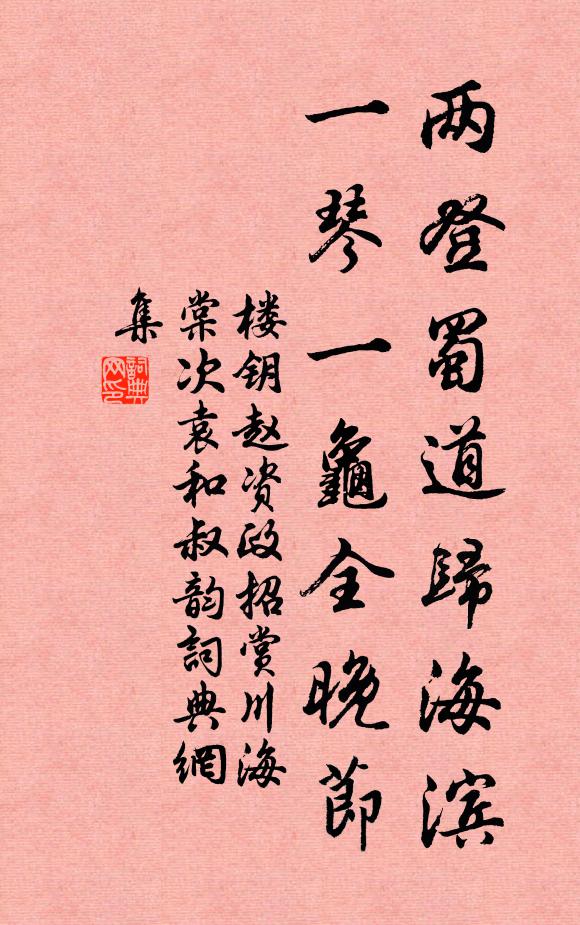 两登蜀道歸海滨
一琴一龜全晚節
楼钥赵资政招赏川海
棠次袁和叔韵詞典網
集
詞典网印